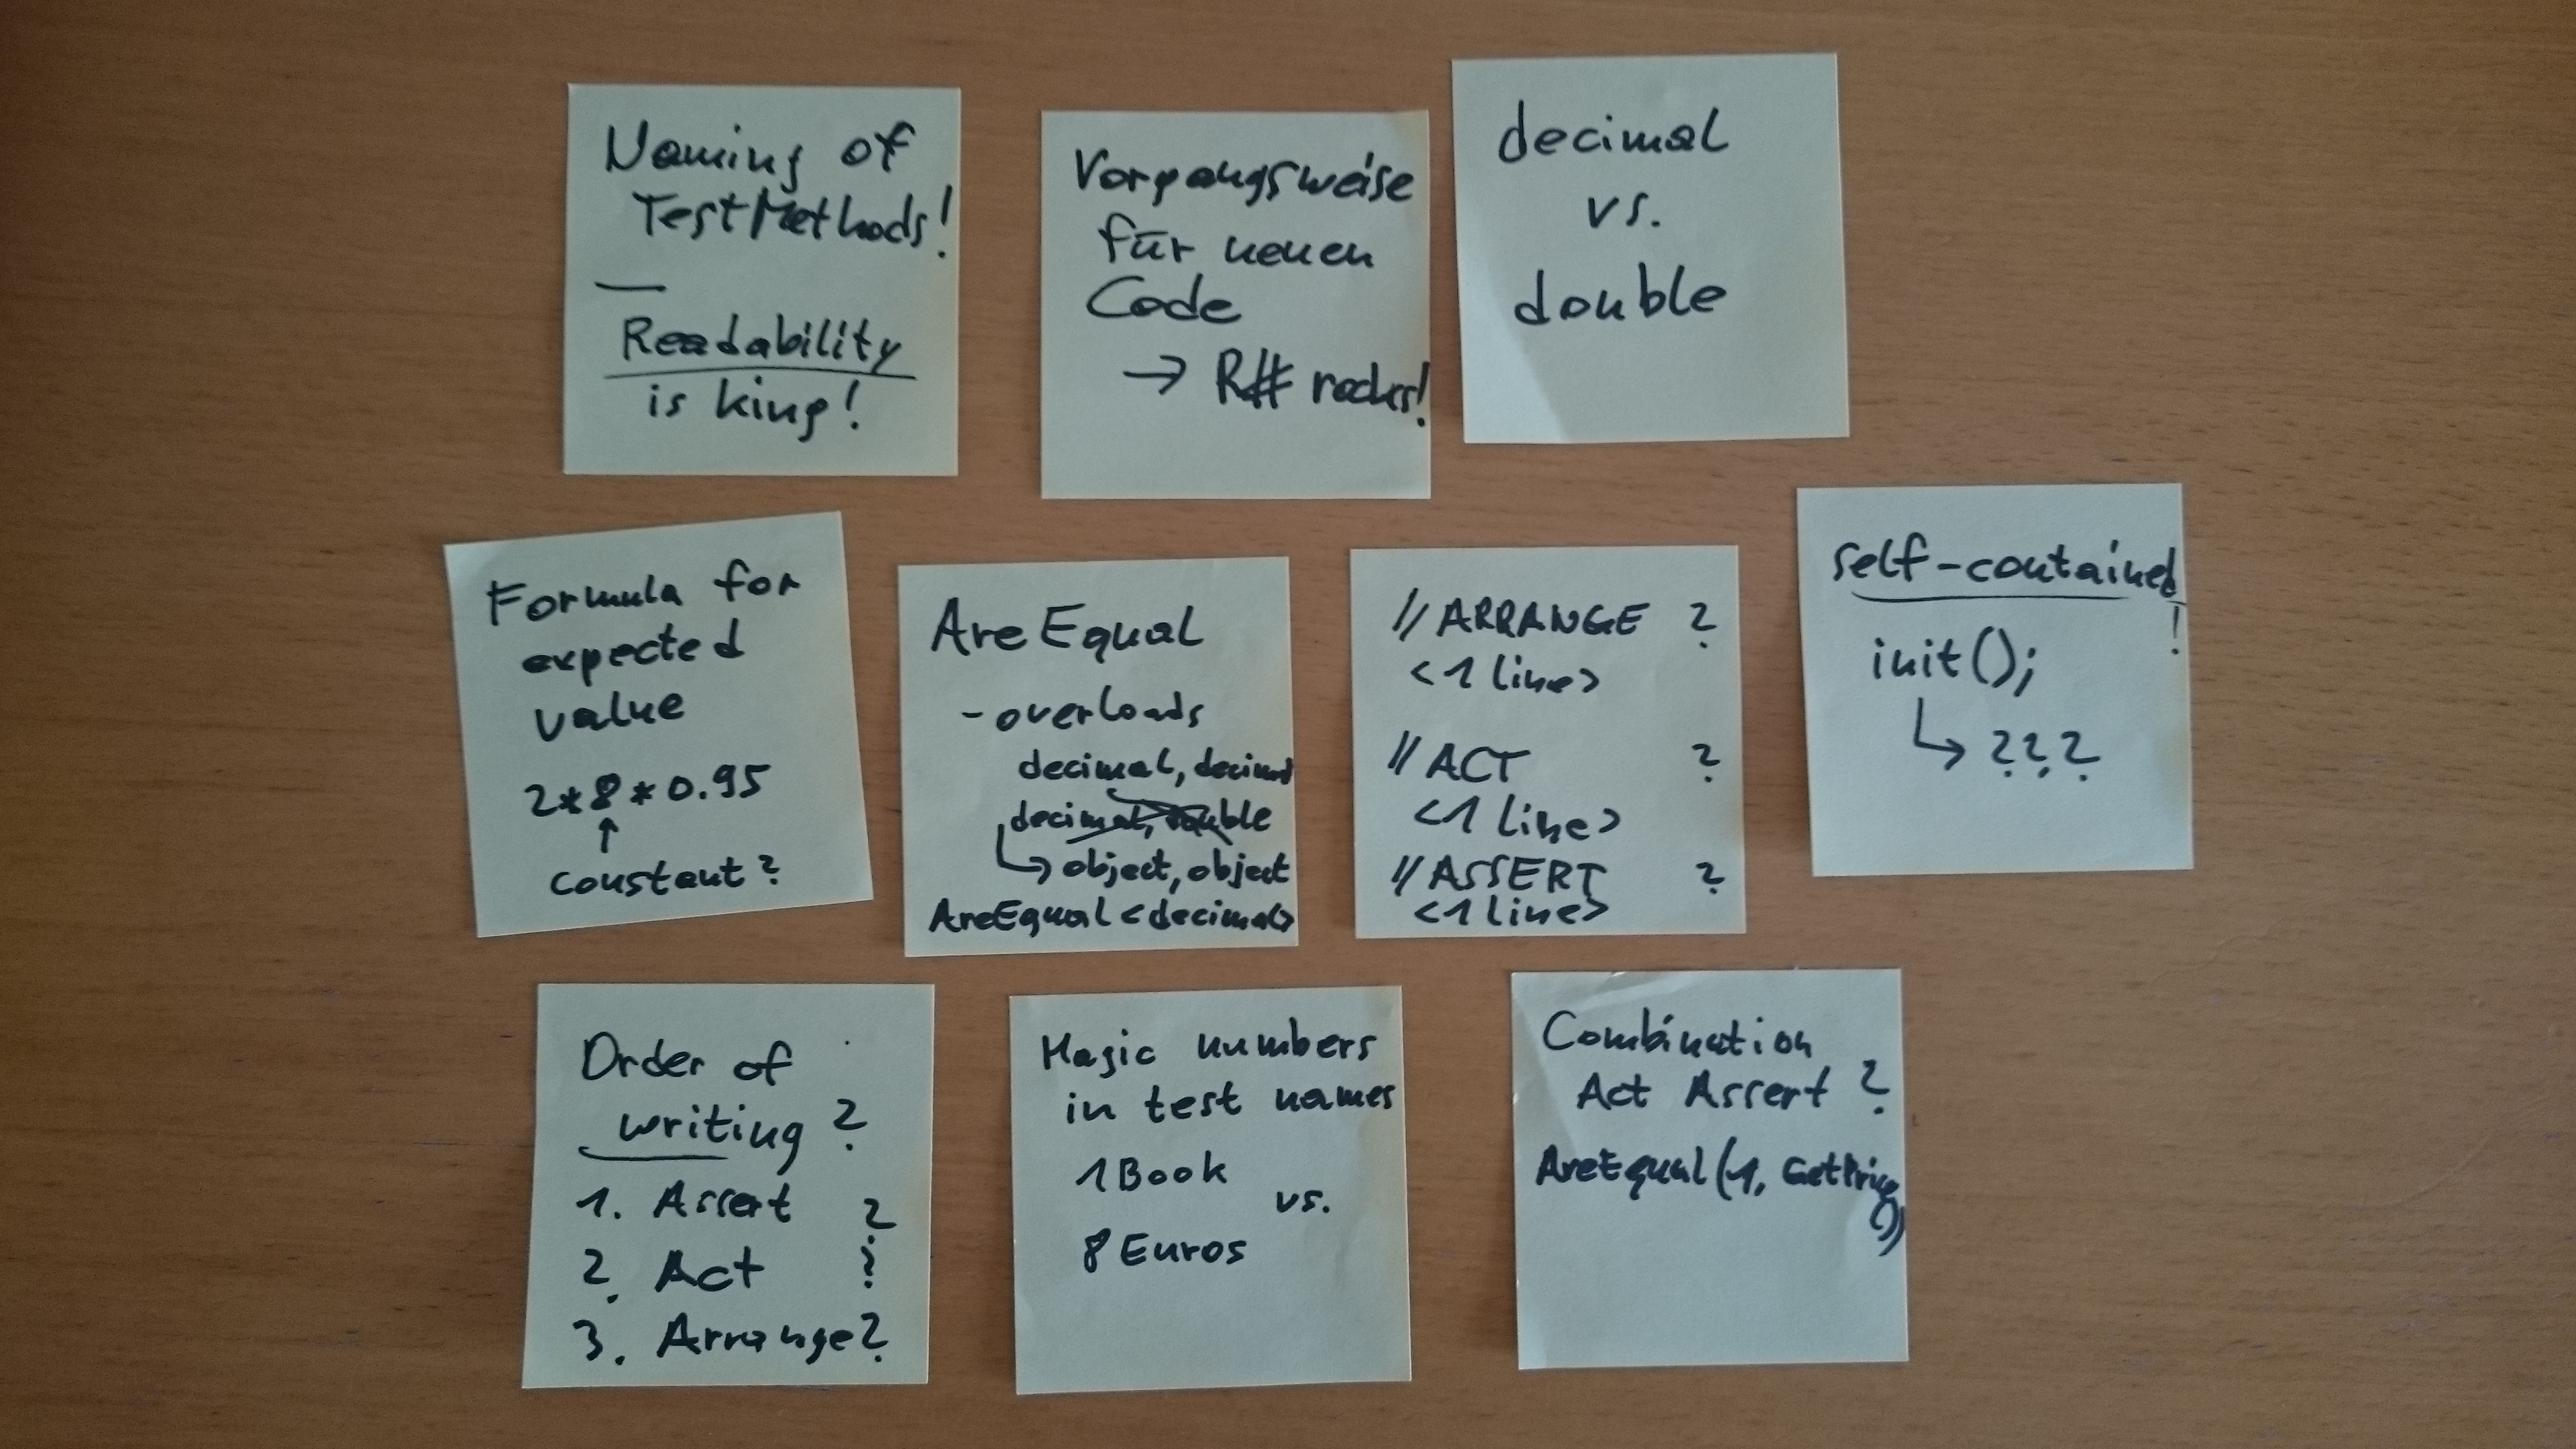 Naming of
TestMethods!
—
Readability
is king!
Vorgangsweise
für neuen
Code
→ R# rocks!
decimal
vs.
double
Formula for
expected
value
2*8*0.95
↑
constant?
AreEqual
- overloads
decimal, decimal
decimal, double
↳ object, object
AreEqual<decimal>
// ARRANGE ?
<1 line>
// ACT ?
<1 line>
// ASSERT ?
<1 line>
self-contained!
init();
↳ ???
Order of
writing?
1. Assert ?
2. Act ?
3. Arrange?
Magic numbers
in test names
1 Book
vs.
8 Euros
Combination
Act Assert ?
AreEqual(1, GetPrice
())